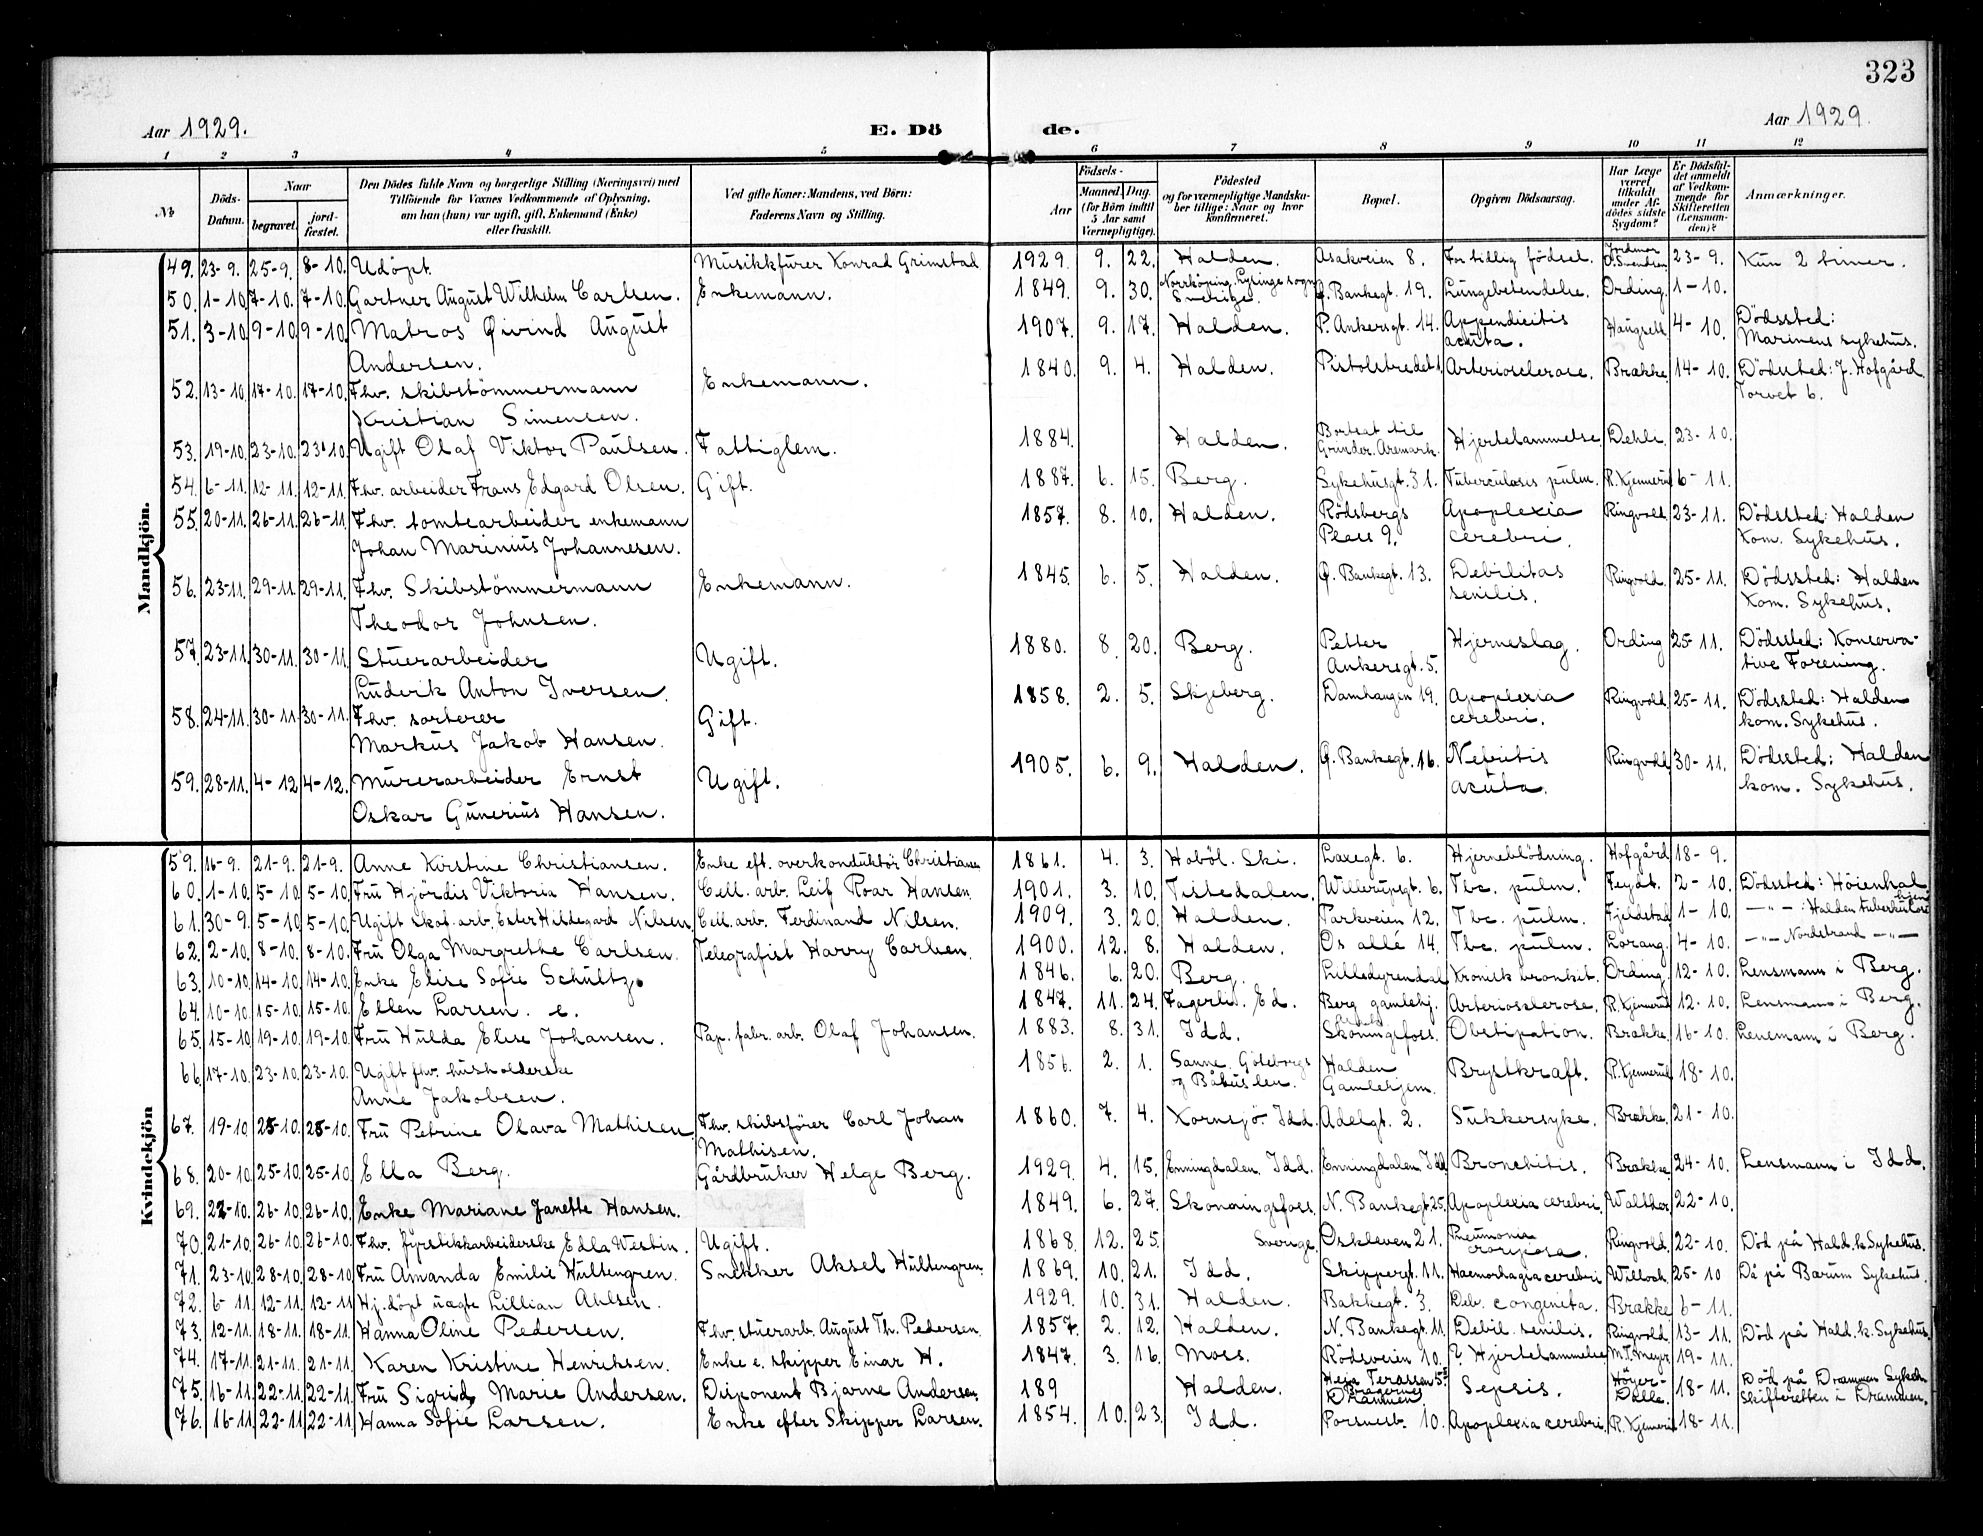 323
Aar 1929.
E. Dö
de.
Aar 1929.
1 2 3 4 5 6 7 8 9 10 11 12
№
Döds-Datum.
Naar
begravet.
jord-fæstet.
Den Dödes fulde Navn og borgerlige Stilling (Næringsvei) med
Tilföiende for Voxnes Vedkommende af Oplysning,
om han (hun) var ugift, gift, Enkemand (Enke)
eller fraskilt.
Ved gifte Koner: Mandens, ved Börn:
Faderens Navn og Stilling.
Födsels-
Aar
Maaned. Dag.
(for Börn indtil
5 Aar samt
Værnepligtige).
Födested
og for værnepligtige Mandska-
ber tillige: Naar og hvor
konfirmeret.
Bopæl.
Opgiven Dödsaarsag.
Har Læge
været
tilkaldt
under Af-
dödes sidste
Sygdom?
Er Dödsfal-
det anmeldt
af Vedkom-
mende for
Skifteretten
(Lensman-
den)?
Anmærkninger.
Mandkjön.
49. 23-9. 25-9. 8-10. Udöpt. Musikkfurer Konrad Grimstad 1929. 9. 22. Halden. Asakveien 8. For tidlig födsel. Jordmor Svendsen 23-9. Kun 2 timer.
50. 1-10. 7-10. 7-10. Gartner August Wilhelm Carlsen. Enkemann. 1849. 9. 30. Norrköping, sogn Sverige. Ø. Bankegt. 19. Lungebetendelse. Ording. 1-10.
51. 3-10. 9-10. 9-10. Matros Øivind August 1907. 9. 17. Halden. P. Ankersgt. 14. Appendicitis acuta. 4-10. Dödssted: Marinens sykehus.
Andersen.
52. 13-10. 17-10. 17-10. Fhv. skibstömmermann Enkemann. 1840. 9. 4. Halden. Pistolstredet 1. Arteriosclerose. Brække. 14-10. Dödssted: J. Hofgård Torvet 6.
Kristian Simensen.
53. 19-10. 23-10. 23-10. Ugift Olaf Viktor Paulsen. Fattiglem. 1884. Halden. Bortsat til Grinder. Aremark. Hjertelammelse. Dehli. 23-10.
54. 6-11. 12-11. 12-11. Fhv. arbeider Frans Edgard Olsen. Gift. 1887. 6. 15. Berg. Sykehusgt. 31. Tuberculosis pulm. R. Kjennerud 6-11.
55. 20-11. 26-11. 26-11. Fhv. tomtearbeider enkemann 1857. 8. 10. Halden. Rödsbergs Plass 9. Apoplexia cerebri. Ringvold. 23-11. Dödssted: Halden Kom. Sykehus.
Johan Marinius Johannesen.
56. 23-11. 29-11. 29-11. Fhv. Skibstömmermann Enkemann. 1845. 6. 5. Halden. Ø. Bankegt. 13. Debilitas senilis. Ringvold. 25-11. Dödssted: Halden Kom. Sykehus.
Theodor Johnsen.
57. 23-11. 30-11. 30-11. Stuerarbeider Ugift. 1880. 8. 20. Berg. Petter Ankersgt. 5. Hjerneslag. Ording 25-11. Dödssted: Konserva-tive Forening.
Luderik Anton Iversen.
58. 24-11. 30-11. 30-11. Fhv. sorterer Gift. 1858. 2. 5. Skjeberg. Damhaugen 19. Apoplexia cerebri. Ringvold. 25-11. Dödssted: Halden kom. Sykehus.
Markus Jakob Hansen.
59. 28-11. 4-12. 4-12. Murerarbeider Ernst Ugift. 1905. 6. 9. Halden. Ø. Bankegt. 16. Nefritis acuta. Ringvold 30-11. Dödssted: Halden kom. Sykehus.
Oskar Gunerius Hansen.
Kvindekjön
59. 16-9. 21-9. 21-9. Anne Kirstine Christiansen. Enke eft. overkonduktör Christiansen 1861. 4. 3. Hoböl. Ski. Laxegt. 6. Hjerneblödning. Hofgård 18-9.
60. 1-10. 5-10. 5-10. Fru Hjördis Viktoria Hansen. Cell. arb. Leif Roar Hansen 1901. 3. 10. Tistedalen. Willerupgt. 6. Tbc. pulm. Feydt. 2-10. Dödssted: Höienhal
61. 30-9. 5-10. 5-10. Ugift skot. arb. Ester Hildegard Nilsen. Cell. arb. Ferdinand Nilsen. 1909. 3. 20. Halden. Parkveien 12. Tbc. pulm. Fjeldstad 1-10. —"— : Halden tuberkulose hjem
62. 2-10. 8-10. 8-10. Fru Olga Margrethe Carlsen. Telegrafist Harry Carlsen. 1900. 12. 8. Halden. Os allé 14. Tbc. pulm. Lorang. 4-10. —"— Nordstrand —"—
63. 10-10. 14-10. 14-10. Enke Elise Sofie Schultz. 1846. 6. 20. Berg. Lilledyrendal Kronisk bronkit. Ording. 12-10. Lensmann i Berg.
64. 10-10. 15-10. 15-10. Ellen Larsen. e. 1847. 11. 24. Fagerli. Ed. Berg gamlehj. Arteriosclerose. R. Kjennerud 12-10. Lensmann i Berg.
65. 15-10. 19-10. 19-10. Fru Hulda Elise Johansen. Pap. fabr. arb. Olaf Johansen. 1883. 8. 31. Idd. Skoningsfoss. Obstipation. Brække. 16-10. Lensmann i Berg.
66. 17-10. 23-10. 23-10. Ugift fhv. husholderske 1856. 2. 1. Sanne. Göteborgs og Båhuslen. Halden Gamlehjem. Brystkraft. R. Kjennerud 18-10.
Anne Jakobsen.
67. 19-10. 25-10. 25-10. Fru Petrine Olava Mathisen Fhv. skibsfører Carl Johan Mathisen. 1860. 7. 4. Kornsjö. Idd. Adelgt. 2. Sukkersyke. Brække. 21-10.
68. 20-10. 25-10. 25-10. Ella Berg. Gårdbruker Helge Berg. 1929. 4. 15. Enningdalen. Idd. Enningdalen Idd Bronchitis. Brække. 24-10. Lensmann i Idd.
69. 22-10. 26-10. 26-10. Enke Mariane Janette Hansen. 1849. 6. 27. Skonningsfoss. N. Bankegt. 25. Apoplexia cerebri. Walther. 22-10.
70. 21-10. 26-10. 26-10. Fhv. fyrstikkarbeiderske Edla Westin. Ugift. 1868. 12. 25. Sverige. Oskleven 21. Pneumonia crouposa. Ringvold. 22-10. Död på Hald. k. Sykehus.
71. 23-10. 28-10. 28-10. Fru Amanda Emilie Hultengren. Snekker Aksel Hultengren. 1869. 10. 21. Idd. Skippergt. 11. Haemorhagia cerebri Willoch. 25-10 Då på Bærum Sykehus.
72. 6-11. 12-11. 12-11. Hj. döpt uægte Lillian Ahlsen. 1929. 10. 31. Halden. Bakkegt. 3. Deb. congenita. Brække 6-11.
73. 12-11. 18-11. 18-11. Hanna Oline Pedersen. Fhv. stuerarb. August Th. Pedersen. 1857. 2. 12. Halden. N. Bankegt. 11. Debil. senilis. Ringvold. 13-11. Död på Hald. k. Sykehus.
74. 17-11. 21-11. 21-11. Karen Kristine Henriksen. Enke e. skipper Einar H. 1847. 3. 16. Moss. Rödsveien 10. ? Hjertelammelse M. T. Meyer. 19-11.
75. 16-11. 22-11. 22-11. Fru Sigrid Marie Andersen. Disponent Bjarne Andersen 189 Halden. Heia Terassen 5 Bragernes Drammen Sepsis. Höyer-Dalle. 18-11. Död på Drammen Sykeh. Skifteretten i Drammen.
76. 16-11. 22-11. 22-11. Hanna Sofie Larsen. Enke efter Skipper Larsen. 1854. 10. 23. Idd. Porsnest. 10. Apoplexia cerebri. R. Kjennerud 18-11.